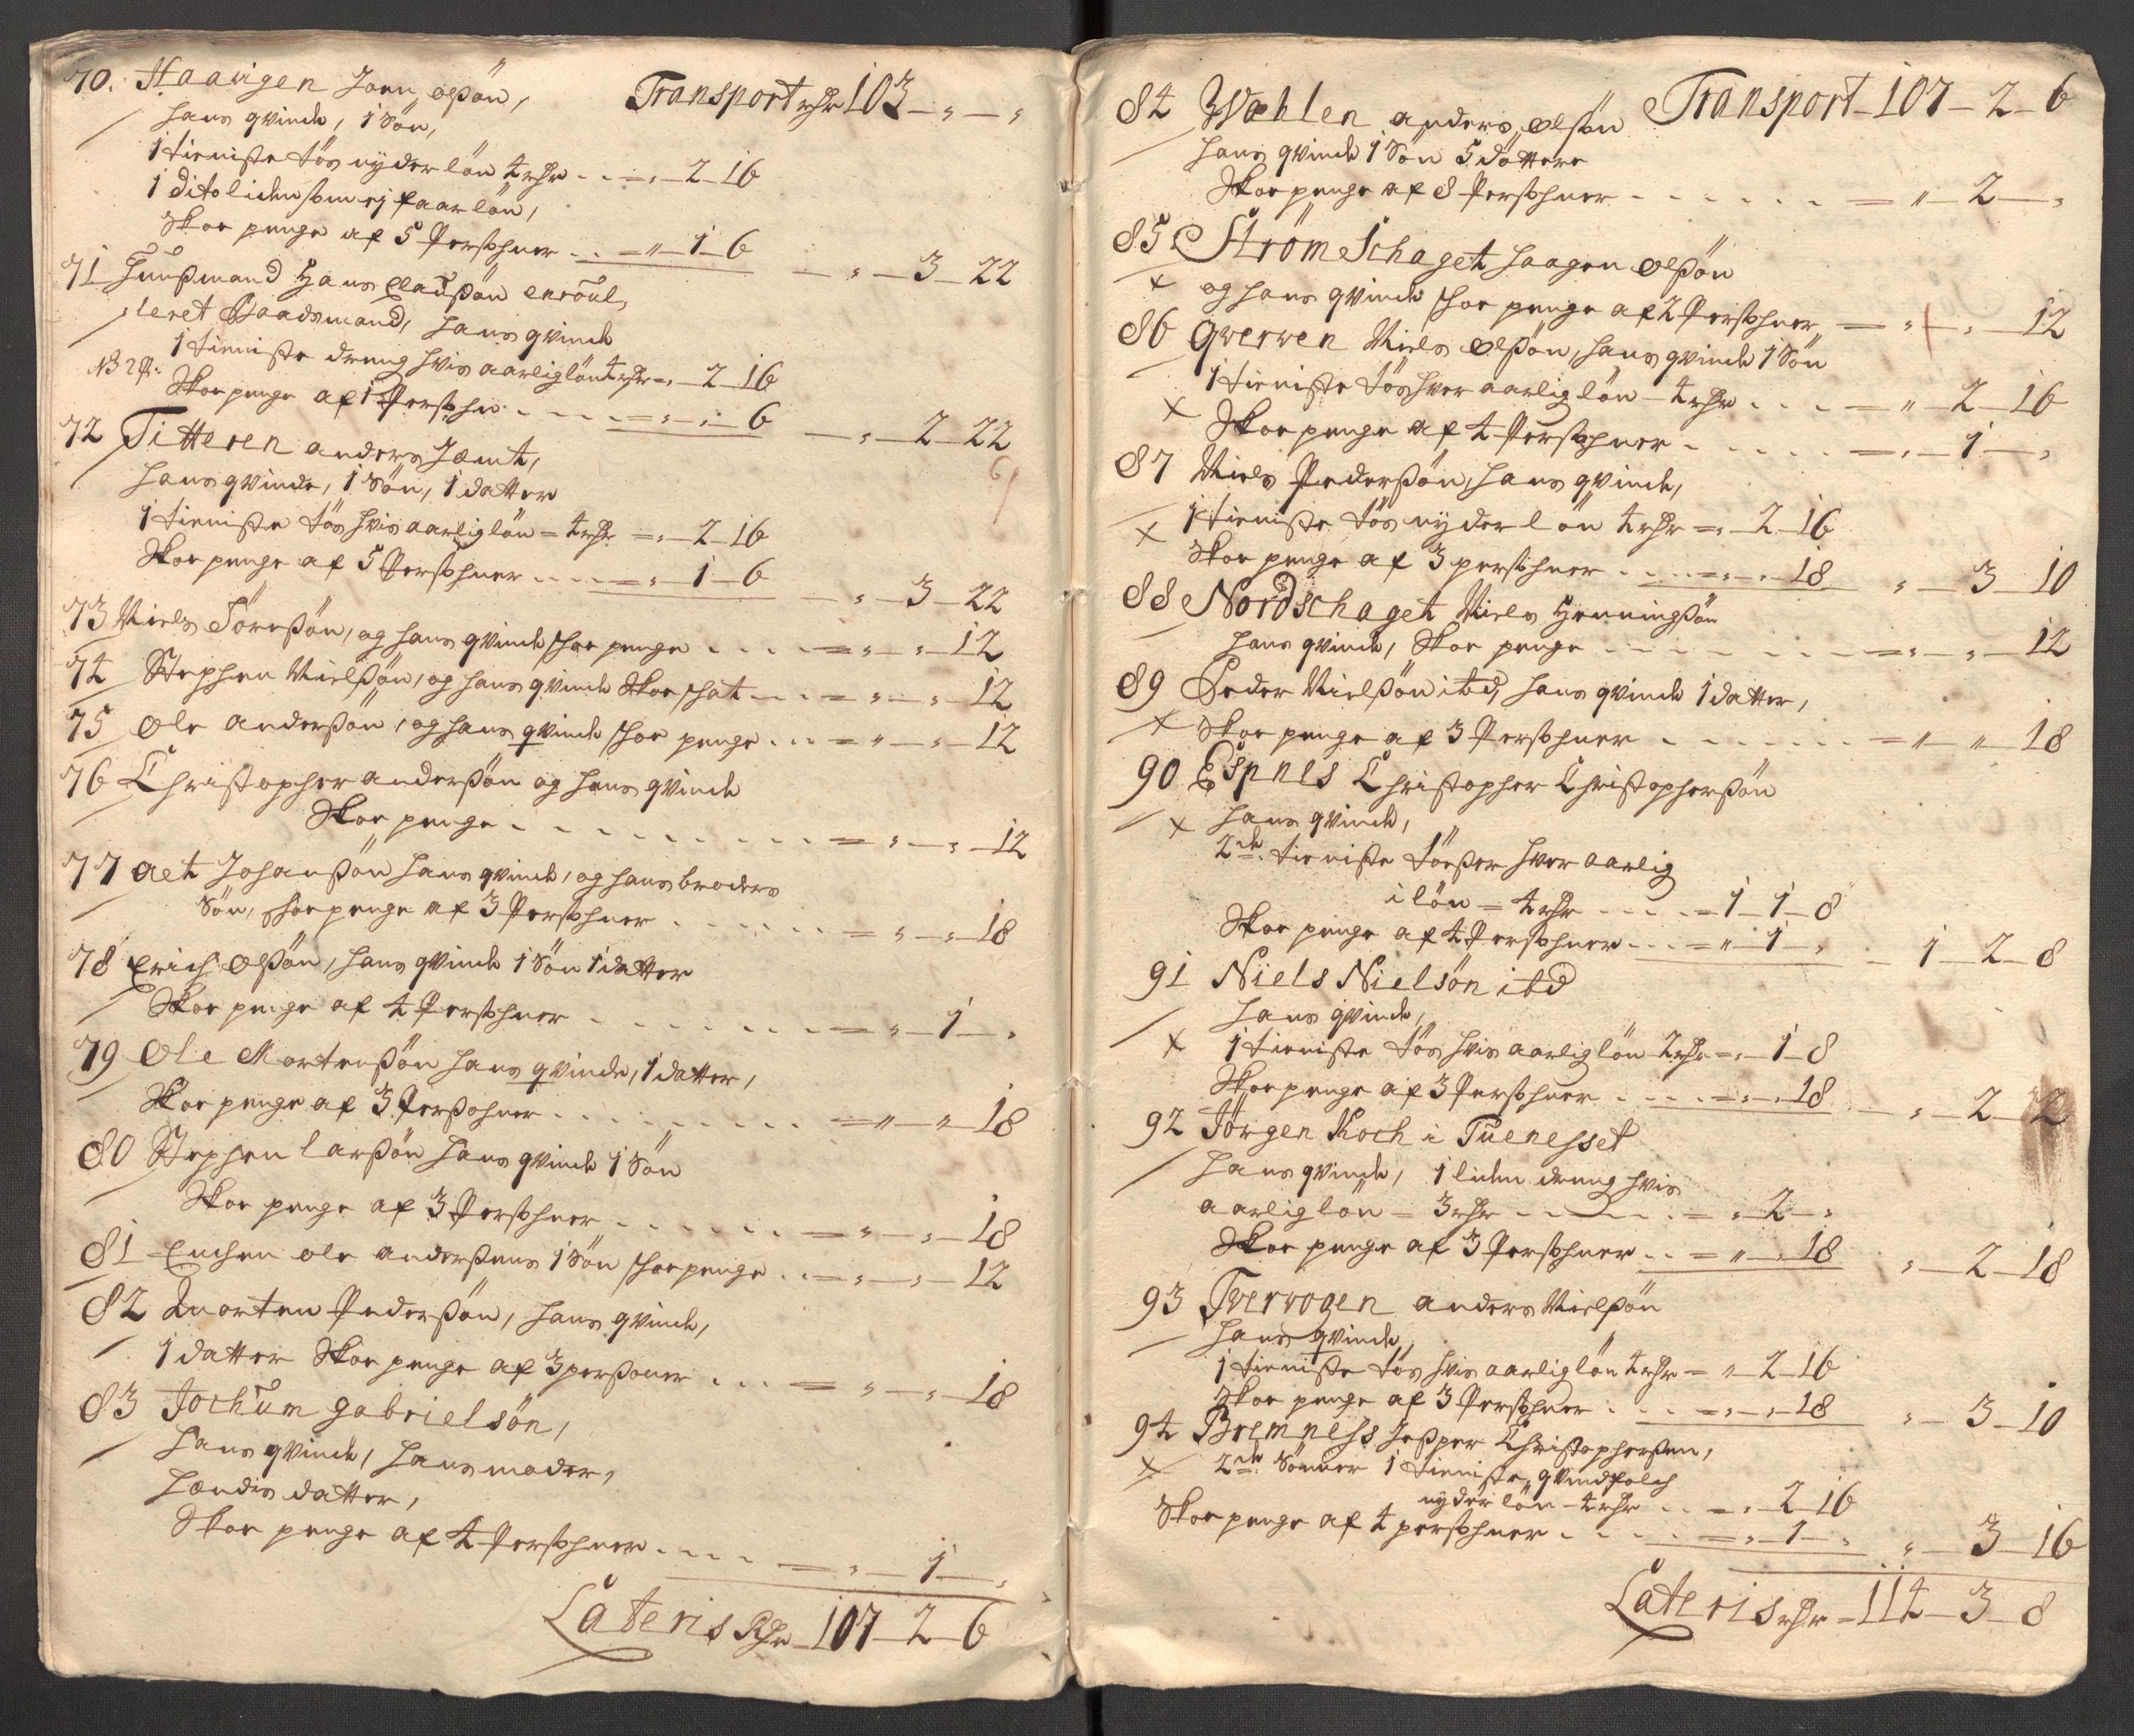 70. Haavigen Joen olßön, Transport rdr 103 – „ – „
hans qvinde, 1 Sön,
1 tieniste tös nyder lön 4 rdr - - = „ – 2 – 16
1 dito liden som ej faar lön,
Skoe penge af 5 Persohner - - = „ – 1 – 6 — „ – 3 – 22
71 Huußmand Hans Eladßön enroul,
leret Baadsmand, hans qvinde
1 tieniste dreng hvis aarlig lön 4 rdr = „ 2 – 16
NB 2 p:
Skoe penge af 1 Persohn - - - - = „ – „ – 6 — „ – 2 – 22
72 Titteren anders Jæmt,
hans qvinde, 1 Sön, 1 datter
1 tieniste tös hvis aarlig lön = 4 rdr = „ – 2 – 16
Skoe penge af 5 Persohner - - - - = „ – 1 – 6 — „ – 3 – 22
73 Niels Töreßön, og hans qvinde schoe penge - - - = „ – „ – 12
74 Stephen Nielßön, og hans qvinde Skoe schat - - = „ – „ – 12
75 Ole anderßön, og hans qvinde schoe penge - - - = „ – „ – 12
76 Christopher anderßön og hans qvinde
Skoe penge - - - - - - - - = „ – „ – 12
77 aet Johanßön hans qvinde, og hans broders
Sön, schoe penge af 3 Persohner - - - - - = „ – „ – 18
78 Erich olßön, hans qvinde 1 Sön 1 datter
Skoe penge af 4 Persohner - - - - - - = „ – 1 – „
79 Ole Mortenßön hans qvinde, 1 datter,
Skoe penge af 3 Persohner - - - - - - = „ – „ – 18
80 Stephen larßön hans qvinde 1 Sön
Skoe penge af 3 Persohner - - - - - = „ – „ – 18
81 Enchen ole anderßens 1 Sön schoe penge - - = „ – „ – 12
82 Morten Pederßön, hans qvinde,
1 datter Skoe penge af 3 persohner - - - = „ – „ – 18
83 Jochum gabrielsön,
hans qvinde, hans moder,
hændis datter,
Skoe penge af 4 Persohner - - - - = „ – 1 – „
Lateris Rdr – 107 – 2 – 6
84 Wæhlen anders olsön Transport – 107 – 2 – 6
hans qvinde 1 Sön 5 döttere
Skoe penge af 8 Persohner - - - - - - = „ – 2 – „
85 Strömschaget haagen olßön
x og hans qvinde schoe penge af 2 Persohner — „ – „ – 12
86 Qverven Niels olßön, hans qvinde 1 Sön
1 tieniste tös hver aarlig lön – 4 rdr - - - = „ – 2 – 16
x Skoe penge af 4 Persohner - - - - - = „ – 1 – „
87 Niels Pederßön, hans qvinde,
x 1 tieniste tös nyder lön 4 rdr = „ – 2 – 16
Skoe penge af 3 persohner - - - = „ – „ – 18 „ – 3 – 10
88 Nordschaget Niels Henningßön
hans qvinde, Skoe penge - - - - - - = „ – „ – 12
89 Peder Nielßön ibd, hans qvinde 1 datter,
x Skoe penge af 3 Persohner - - - - - - = „ „ – 18
90 Espnes Christopher Christopherßön
x hans qvinde,
2de tieniste tösßer hver aarlig
i lön – 4 rdr - - - = 1 – 1 – 8
Skoe penge af 4 Persohner - - - = „ – 1 – „ – 1 – 2 – 8
91 Niels Nielsön ibd
hans qvinde,
x 1 tieniste tös hvis aarlig lön 2 rdr = „ – 1 – 8
Skoe penge af 3 Persohner - - - - = „ – „ – 18 – „ – 2 – 2
92 Jörgen Koch i Tuenesset
hans qvinde, 1 liden dreng hvis
aarlig lön – 3 rdr - - - - = „ 2 – „
Skoe penge af 3 Persohner - - = „ – „ 18 „ – 2 – 18
93 Tvervogen anders Nielßön
hans qvinde,
1 tieniste tös hvis aarlig lön 4 rdr = „ 2 – 16
Skoe penge af 3 Persohner - - - = „ – „ – 18 „ – 3 – 10
94 Bremness Jesper Christopherßen,
x 2de Sönner 1 tieniste qvindfolch
nyder lön – 4 rdr - - = „ 2 – 16
Skoe penge af 4 persohner - - - - = „ – 1 – „ „ – 3 – 16
Lateris rdr – 114 – 3 – 8